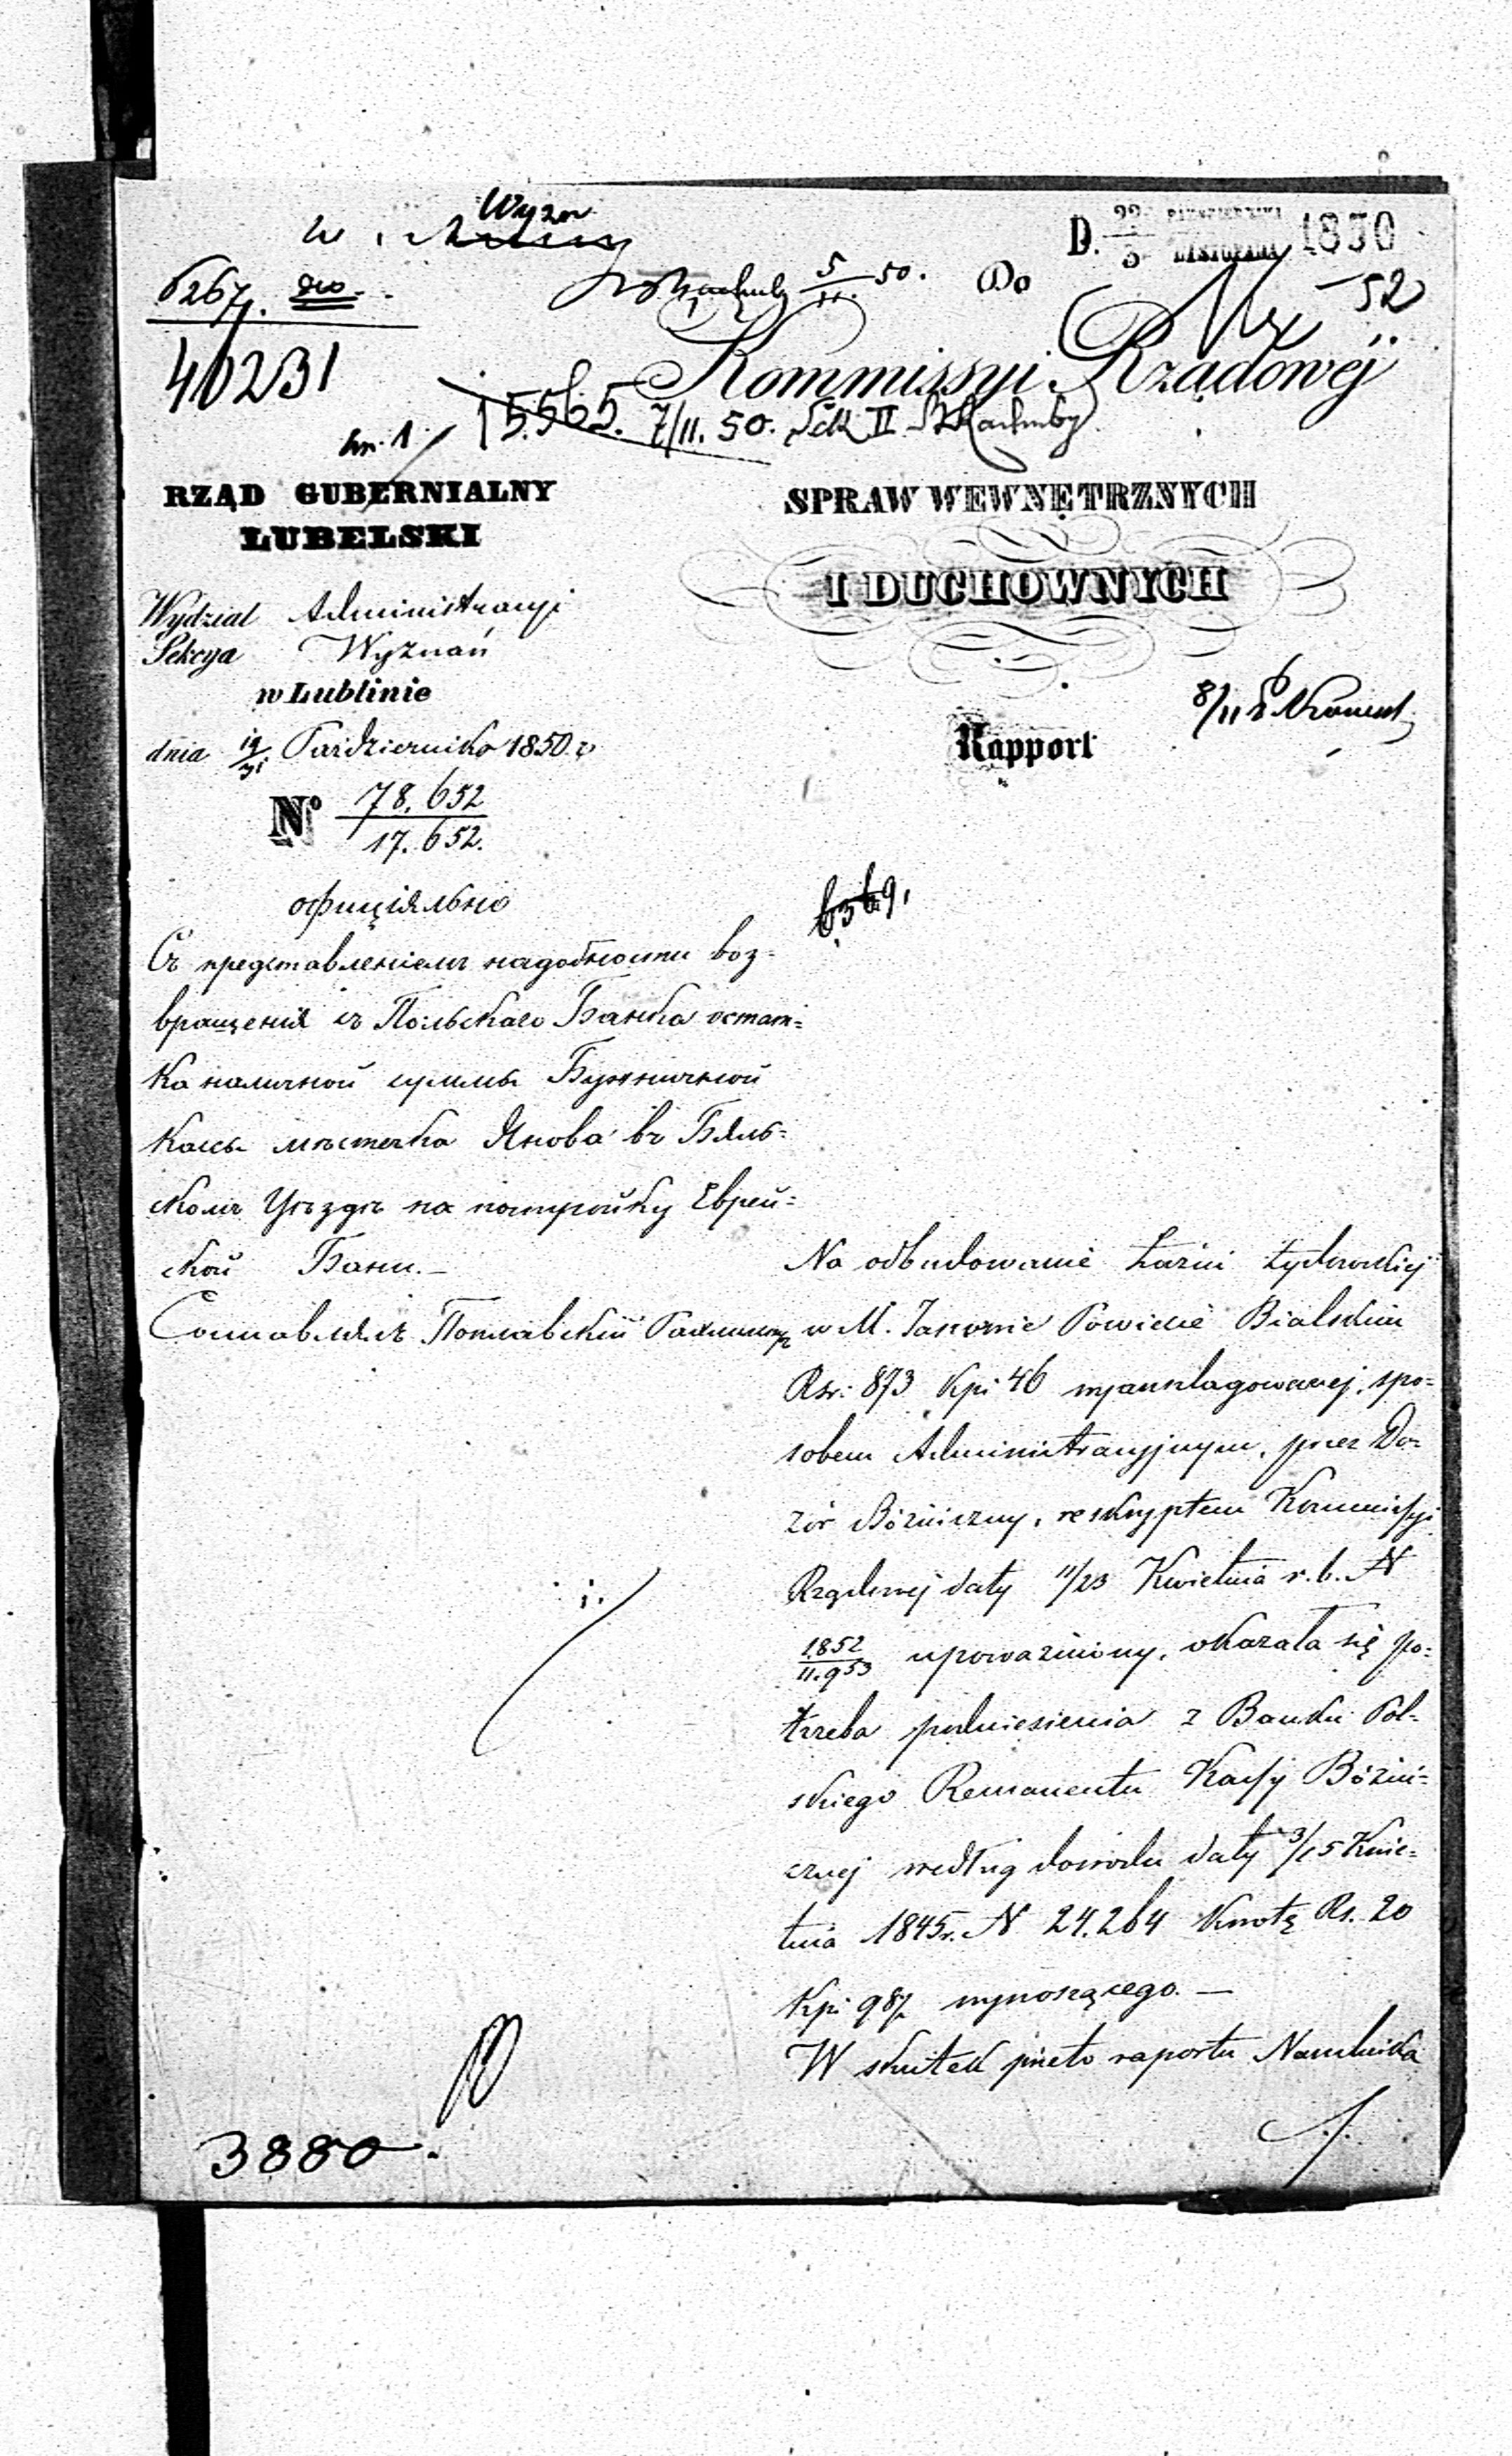 Wyzn
D. 22/3 PAŹDZIERNIKA LISTOPADA 1850
6267.
5/11 50.
Do
52
40231
Kommissyi Rządowéj
15.565. 7/11. 50. Sek II
RZĄD GUBERNIALNY
LUBELSKI
SPRAW WEWNĘTRZNYCH
I DUCHOWNYCH
Wydział Administracyi
Sekcya Wyznań
w Lublinie
dnia 19/31 Października 1850 r
8/11
Rapport
No 78.652/17.652.
офиціяльно
Съ представленіемъ надобности воз=
вращенія съ Польскаго Банка остат=
ка наличной суммы Бужничной
кассы мѣстечка Янова въ Бяль=
скомъ Уѣздѣ на постройку Еврей=
ской Бани.—
Составлялъ Поплавскій
Na odbudowanie Łaźni żydowskiéj
w M. Janowie Powiecie Bialskim
Rsr: 873 kpi 46 wyanszlagowanej, spo=
sobem Administracyjnym, przez Do=
zór Bóżniczny, reskryptem Kommissyi
Rządowej daty 11/23 Kwietnia r. b. N
1852/11.953 upoważniony, okazała się po=
trzeba podniesienia z Banku Pol=
skiego Remanentu Kassy Bóźni=
cznej według dowodu daty 3/15 Kwie=
tnia 1845 r. N 24.264 kwotę Rs. 20
Kpi 98½ wynoszącego.—
W skutek przeto raportu Naczelnika
3880